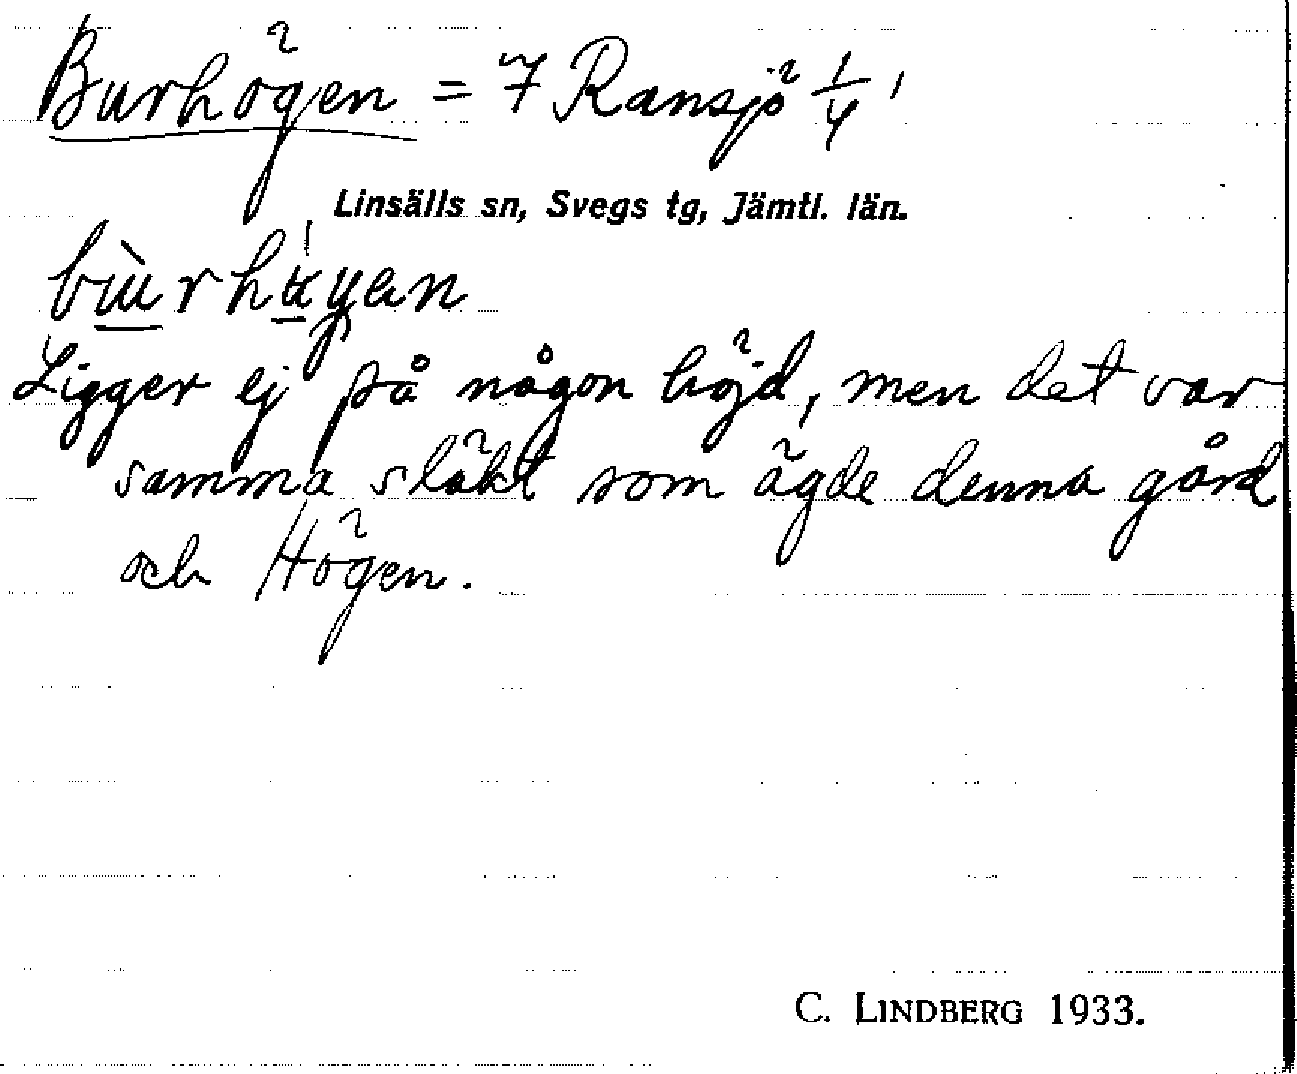 Burhögen = 7 Ransjö 1/4
Linsälls sn, Svegs tg, Jämtl. län.
Ligger ej på någon höjd, men det var
samma släkt som ägde denna gård
och Högen.
C. LINDBERG 1933.